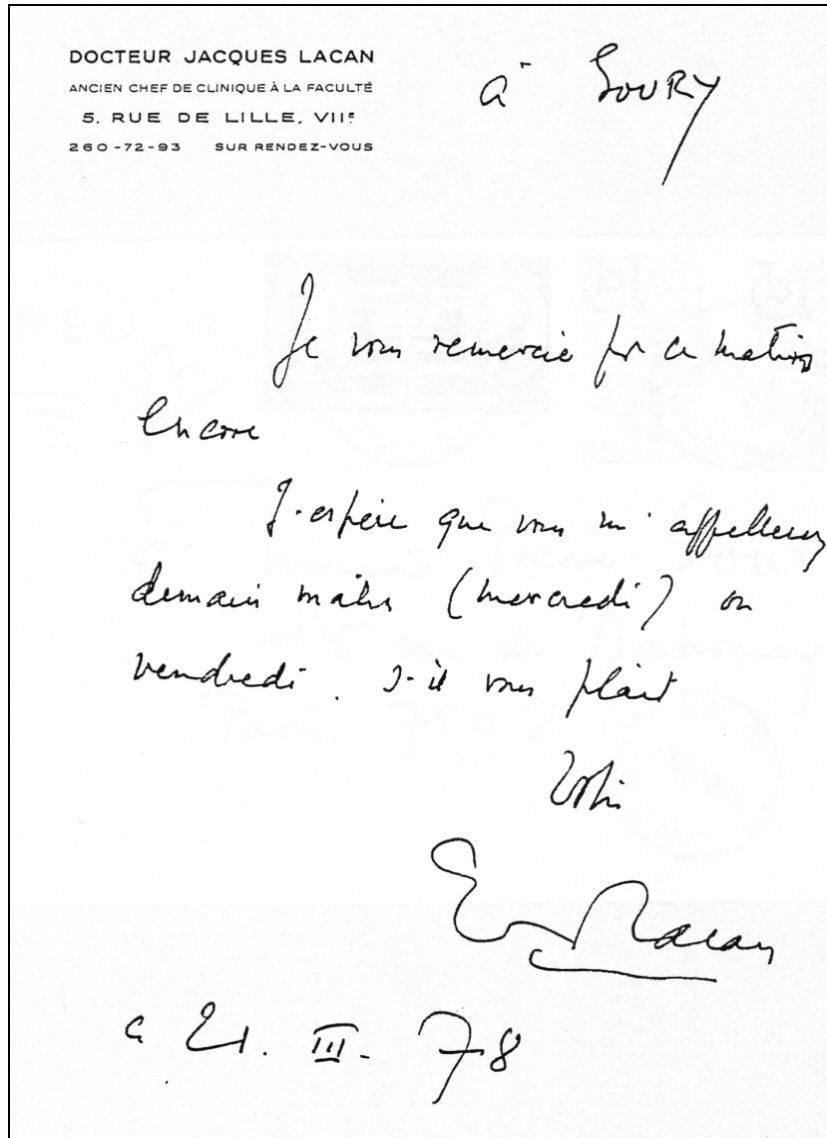 DOCTEUR JACQUES LACAN
ANCIEN CHEF DE CLINIQUE À LA FACULTÉ
5, RUE DE LILLE, VIIᵉ
260-72-93 SUR RENDEZ-VOUS
à SOURY
Je vous remercie pr ce matin
Encore
J'espère que vous m'appellerez
demain matin (mercredi) ou
vendredi. s'il vous plait
Votre
Lacan
ce 21. III. 78